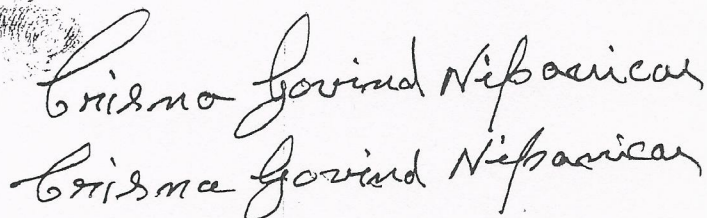 Crisna Govind Nipanicar
Crisna Govind Nipanicar